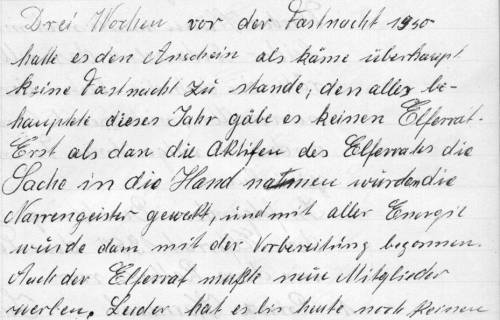 Drei Wochen vor der Fastnacht 1950
hatte es den Anschein als käme überhaupt
keine Fastnacht zu stande, den alles be-
hauptete dieses Jahr gäbe es keinen Elferrat.
Erst als dan die Aktifen des Elferrates die
Sache in die Hand nahmen wurden die
Narrengeister geweckt, und mit aller Energie
wurde dann mit der Vorbereitung begonnen.
Auch der Elferrat mußte neue Mitglieder
werben. Leider hat es bis heute noch keinen